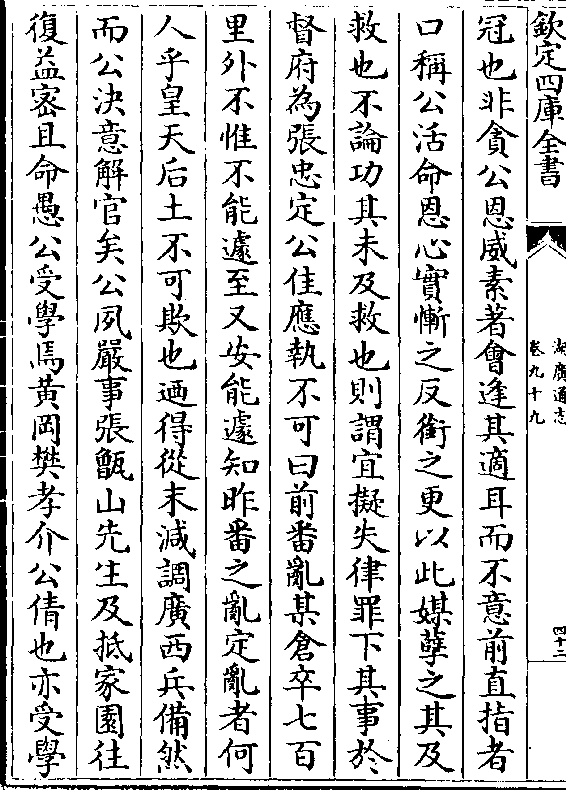 欽定四庫全書
湖廣通志
卷九十九
四十二
冠也非貪公恩威素著會逢其適耳而不意前直指者
口稱公活命恩心實慚之反銜之更以此媒孽之其及
救也不論功其未及救也則謂宜擬失律罪下其事於
督府為張忠定公佳應執不可曰前番亂某倉卒七百
里外不惟不能遽至又安能遽知昨番之亂定亂者何
人乎皇天后土不可欺也迺得從末減調廣西兵備然
而公決意解官矣公夙嚴事張甑山先生及抵家園往
復益密且命愚公受學焉黃岡樊孝介公倩也亦受學